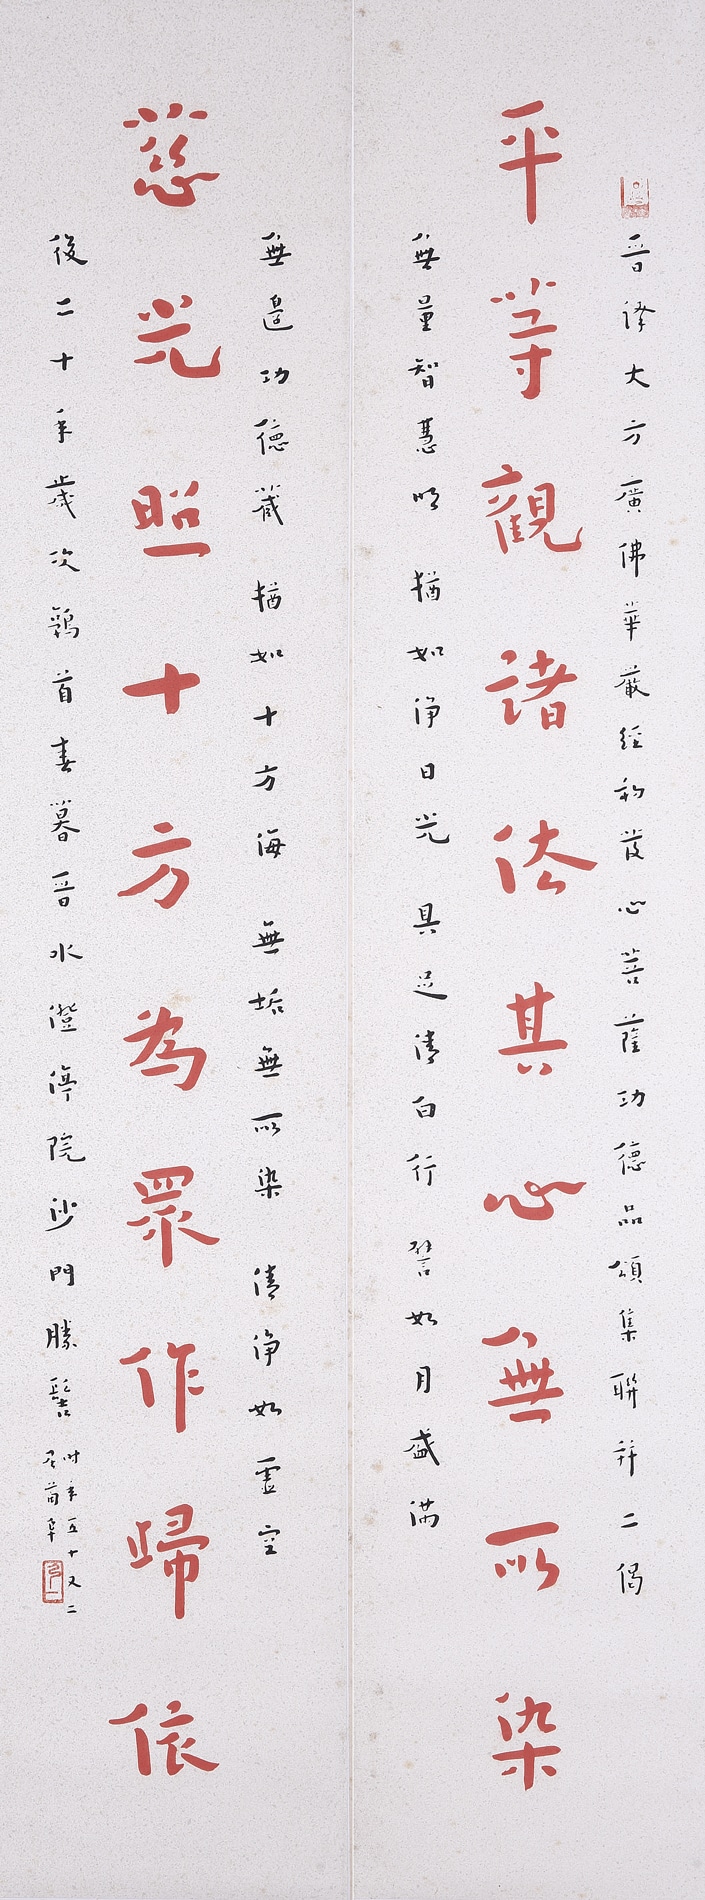 晉譯大方廣佛華嚴經初發心菩薩功德品頌集聯并二偈
平等觀諸法其心無所染
無量智慧明 猶如淨日光 具足清白行 譬如月盛滿
無邊功德藏 猶如十方海 無垢無所染 清淨如虛空
慈光照十方為眾作歸依
後二十年歲次鶉首春暮晉水澄停院沙門勝髻
時年五十又二